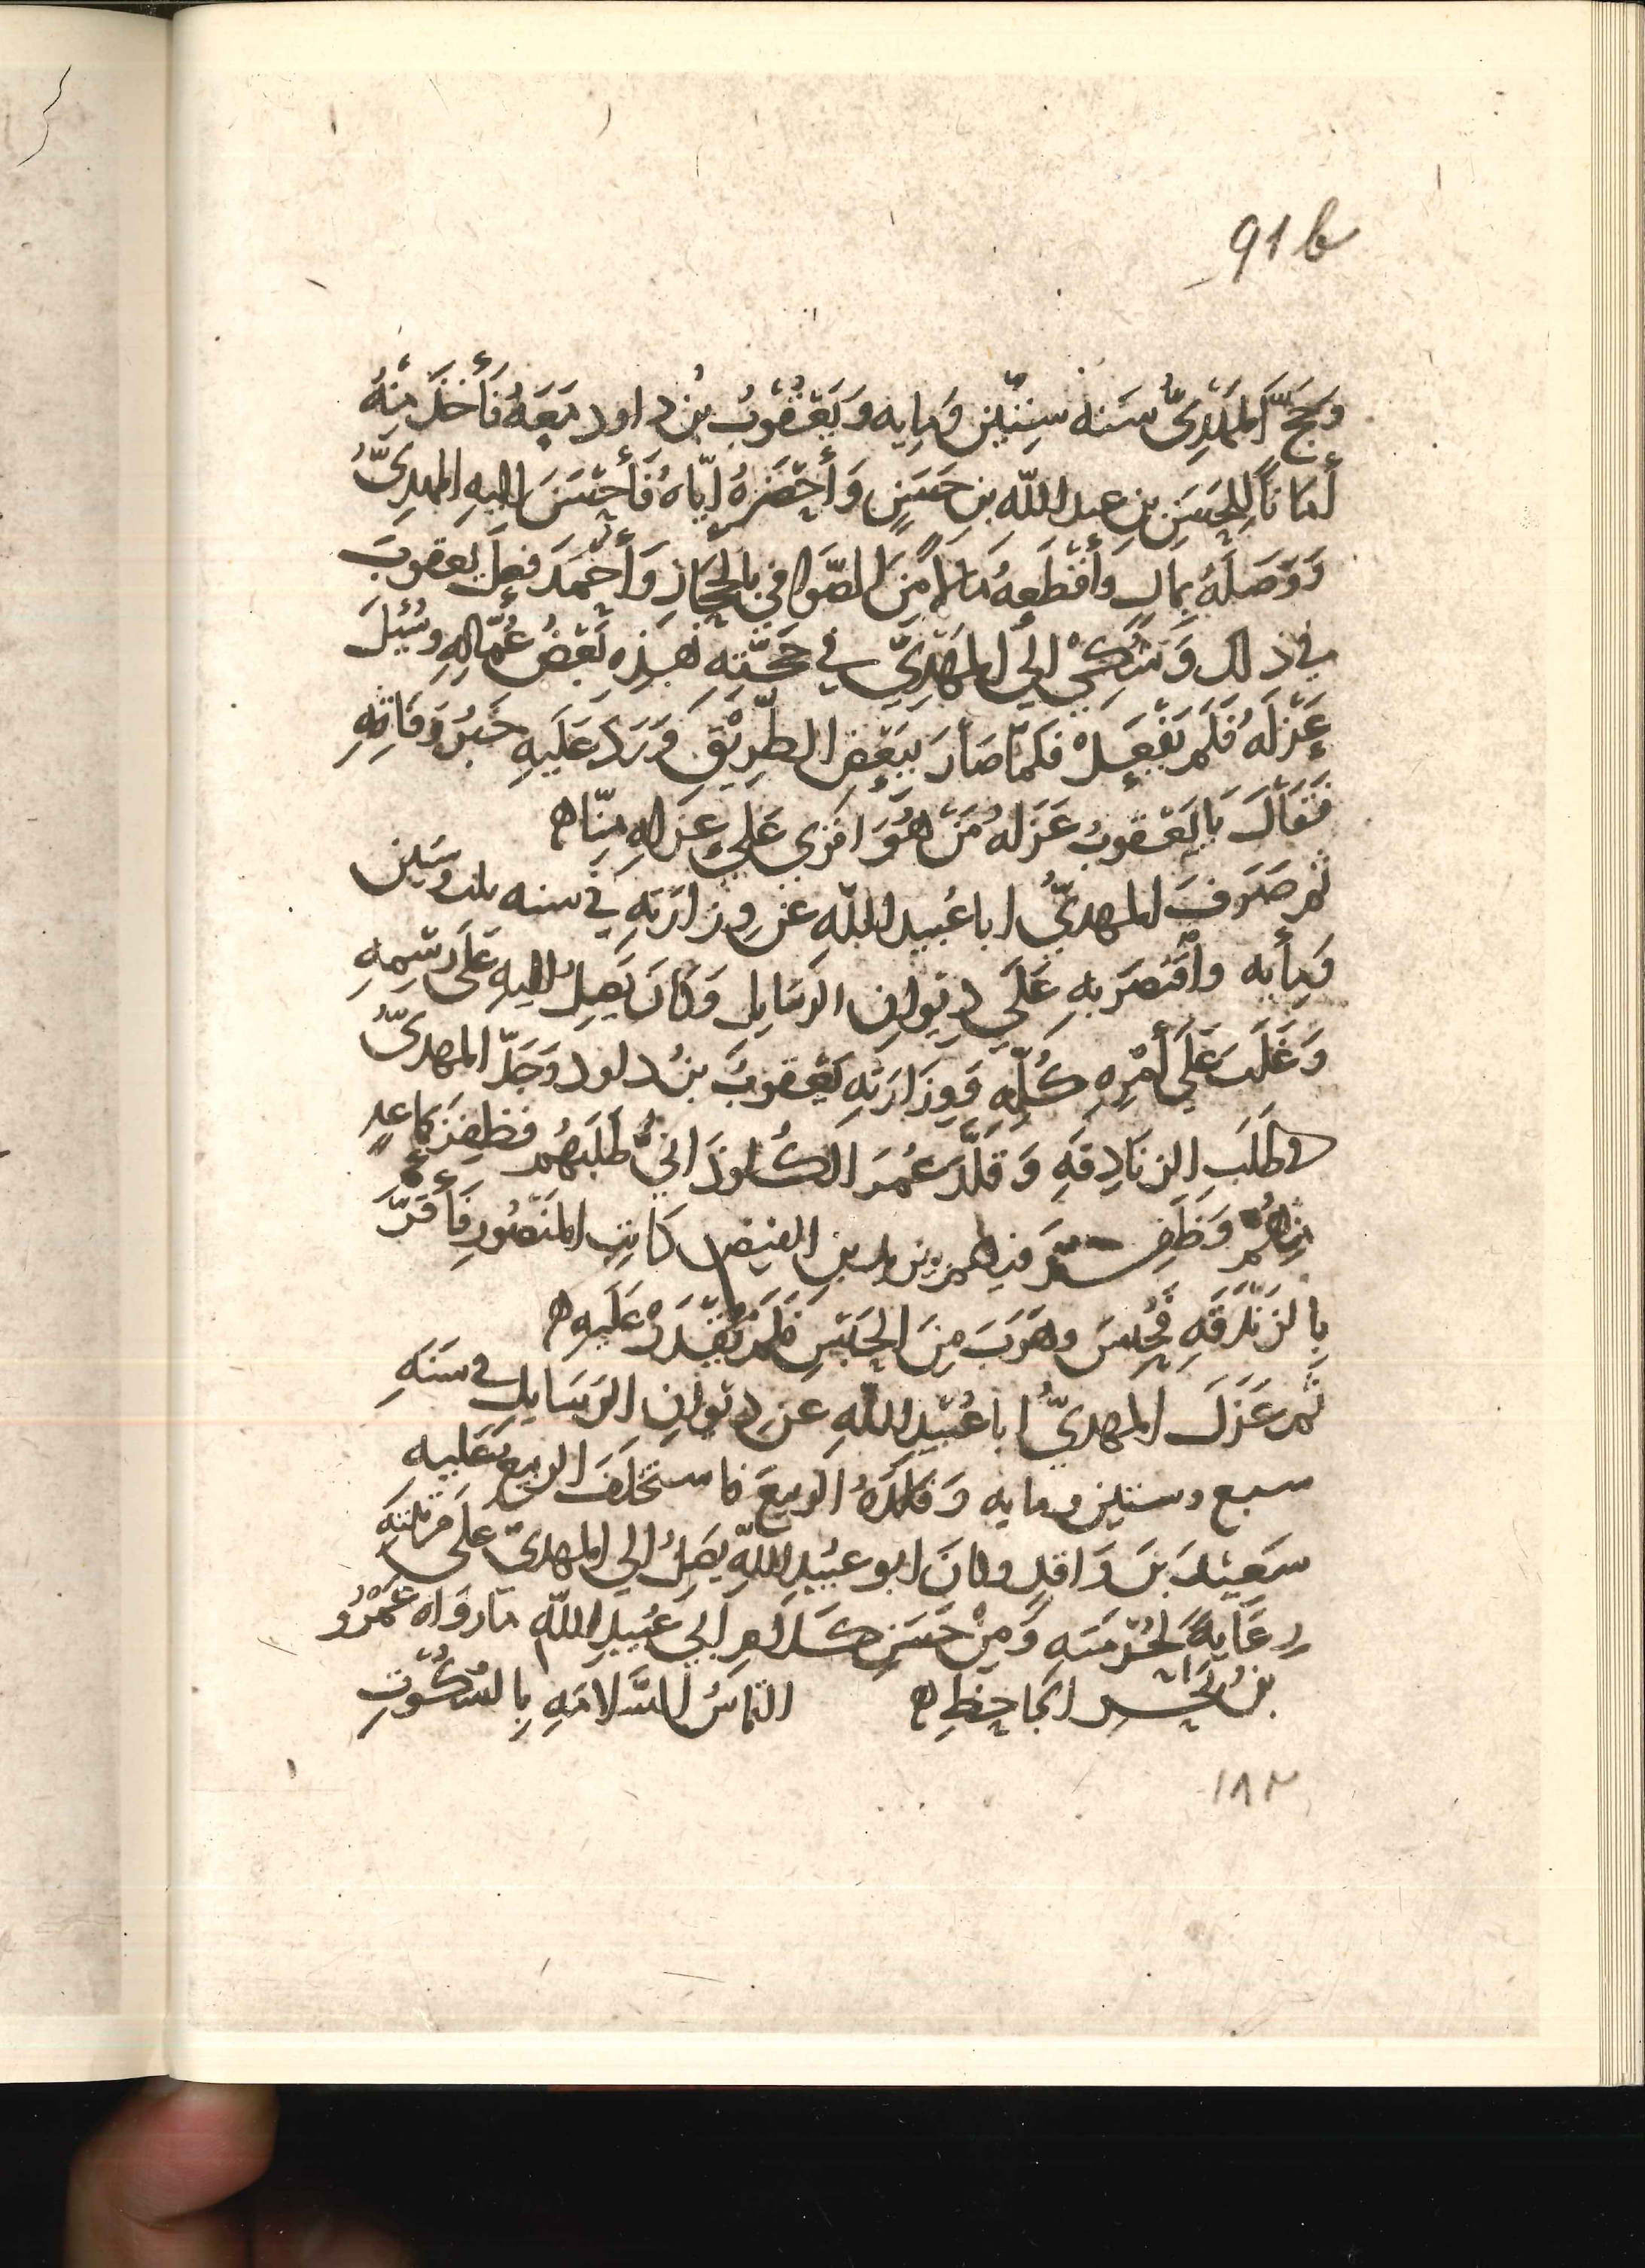 91b
وَحَجَّ المَهْدِيُّ سَنه سِتّين وَمِايه وَيَعْقُوبُ بنُ داود مَعَهُ فَأخَذ مِنْهُ
أمَاناً لِلحَسَنِ بنِ عبد اللّه بنِ حَسَنٍ وَأحْضَرهُ ايّاهُ فَأحْسَنَ اليهِ المهدِيُّ
وَوَصَلَهُ بمَالٍ وَأقْطَعهُ مَالاً مِنَ الصَّوافي بالحِجَازِ وَأحْمَدَ فِعلَ يعقوبَ
في ذلك وَشُكِيَ الي المَهْدِيِّ في حَجَّتِه هَذِه بَعْضُ عُمَّالِهِ وسُئِلَ
عَزْلَهُ فَلَمْ يَفْعَلْ فَلمَّا صَارَ بِبَعْضِ الطَّرِيْقِ وَرَدَ عَلَيهِ خَبَرُ وَفَاتِهِ
فَقَالَ يَا يَعْقوبُ عَزَلهُ مَنْ هُوَ اقْوَي عَلي عَزلهِ مِنّا ه
ثم صَرَفَ المهديُّ ابا عُبيد اللّهِ عَن وِزَارَتهِ في سنه ثلث وستين
وَمِأيه واقْتَصَرَ بهِ عَلَي ديوانِ الرَسَايل وَكَانَ يَصِلُ اليهِ عَلَي رَسْمِهِ
وَغَلَبَ عَلَي أمْرِهِ كُلِّهِ وَوِزَارَتهِ يَعْقوبُ بنُ داود وَجَدّ المهديُّ
في طَلَبِ الزنَادِقَهِ وَقَلَّدَ عُمَرَ الكَلوذَانيَّ طَلَبَهُم فظفِرَ بجَمَاعهٍ
مِنْهُم وَظَفِرَ فيهم بيزيد بن الفيض كَاتِبِ المَنْصُورِ فَأقَرَّ
بِالزنْدَقَهِ فَحُبِسَ وهَرَبَ مِنَ الحَبْسِ فَلَمْ يُقْدَرْ عَلَيهِ ه
ثم عَزَلَ المهديُّ ابا عُبَيْدِ اللّهِ عن ديوانِ الرَسَايِل في سَنَهِ
سبع وستين ومايه وَقلدَهُ الربيعَ فاستَخْلَفَ الربيعُ عَليهِ
سَعِيْدَ بنَ وَاقدٍ وكانَ ابو عبَيْدِ اللّهِ يَصِلُ الي المهديّ علَي مَرْتَبَتِهِ
رِعَايَهً لِحُرْمَتِهِ وَمِنْ حَسَنِ كَلامِ ابي عُبَيدِ اللّه مَا رَوَاه عَمْرُو
بن بَحْرٍ الجَاحِظِ ه التِمَاسُ السَّلامَهِ بِالسُكُوتِ
١٨٢